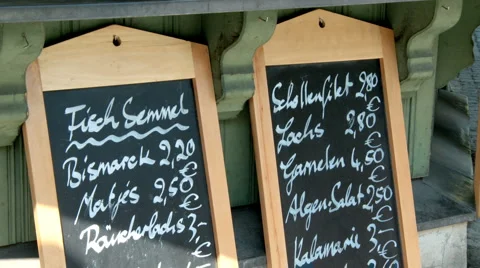 Fisch Semmel
Bismarck 2,20 €
Matjes 2,50 €
Räucherlachs 3,- €
Schollenfilet 2,80 €
Lachs 2,80 €
Garnelen 4,50 €
Algen-Salat 2,50 €
Kalamarie 3,- €